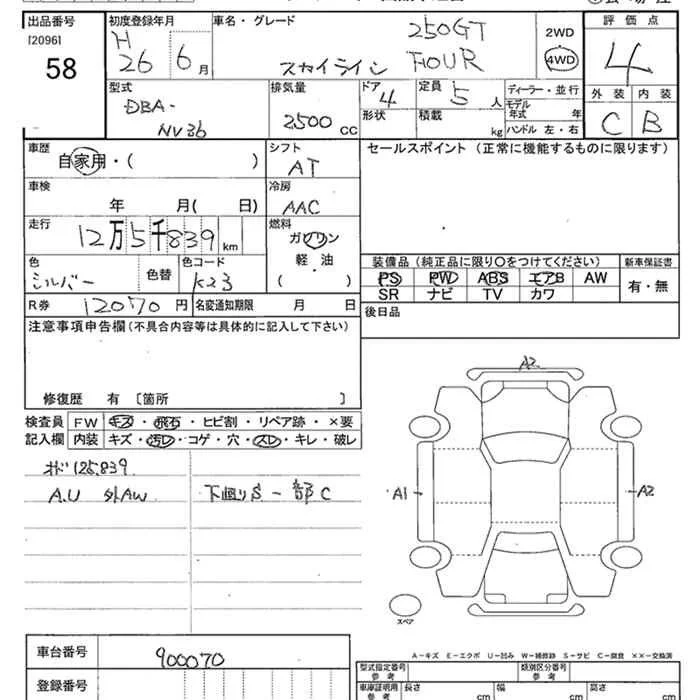 出品番号
[2096]
58
初度登録年月
H
26 6月
車名・グレード
250GT
スカイライン FOUR
2WD
4WD
評価点
4
外装 内装
C B
型式
DBA-
NV36
排気量
2500 CC
ドア
4
形状
定員
5 人
積載
kg
ディーラー・並行
モデル
年式 年
ハンドル 左・右
車歴
自家用・( )
シフト
AT
セールスポイント (正常に機能するものに限ります)
車検
年 月( 日)
冷房
AAC
走行
12万5千839km
燃料
ガソリン
軽・油
( )
色
シルバー
色替
色コード
K23
装備品(純正品に限り○をつけてください)
新車保証書
PS PW ABS エアB AW
SR ナビ TV カワ
有・無
R券 12070円
名変通知期限 月 日
後日品
注意事項申告欄(不具合内容等は具体的に記入して下さい)
修復歴 有 〔箇所 〕
検査員
記入欄
FW キズ・飛石・ヒビ割・リペア跡・×要
内装 キズ・汚レ・コゲ・穴・スレ・キレ・破レ
オド125,839
A.U 外AW
下廻りS 一部C
A2
A1
A2
スペア
A-キズ E-エクボ U-凹み W-補修跡 S-サビ C-腐食 ××-交換済
車台番号
900070
登録番号
型式指定番号
参考
類別区分番号
参考
車庫証明用
参考
長さ cm
幅 cm
高さ cm